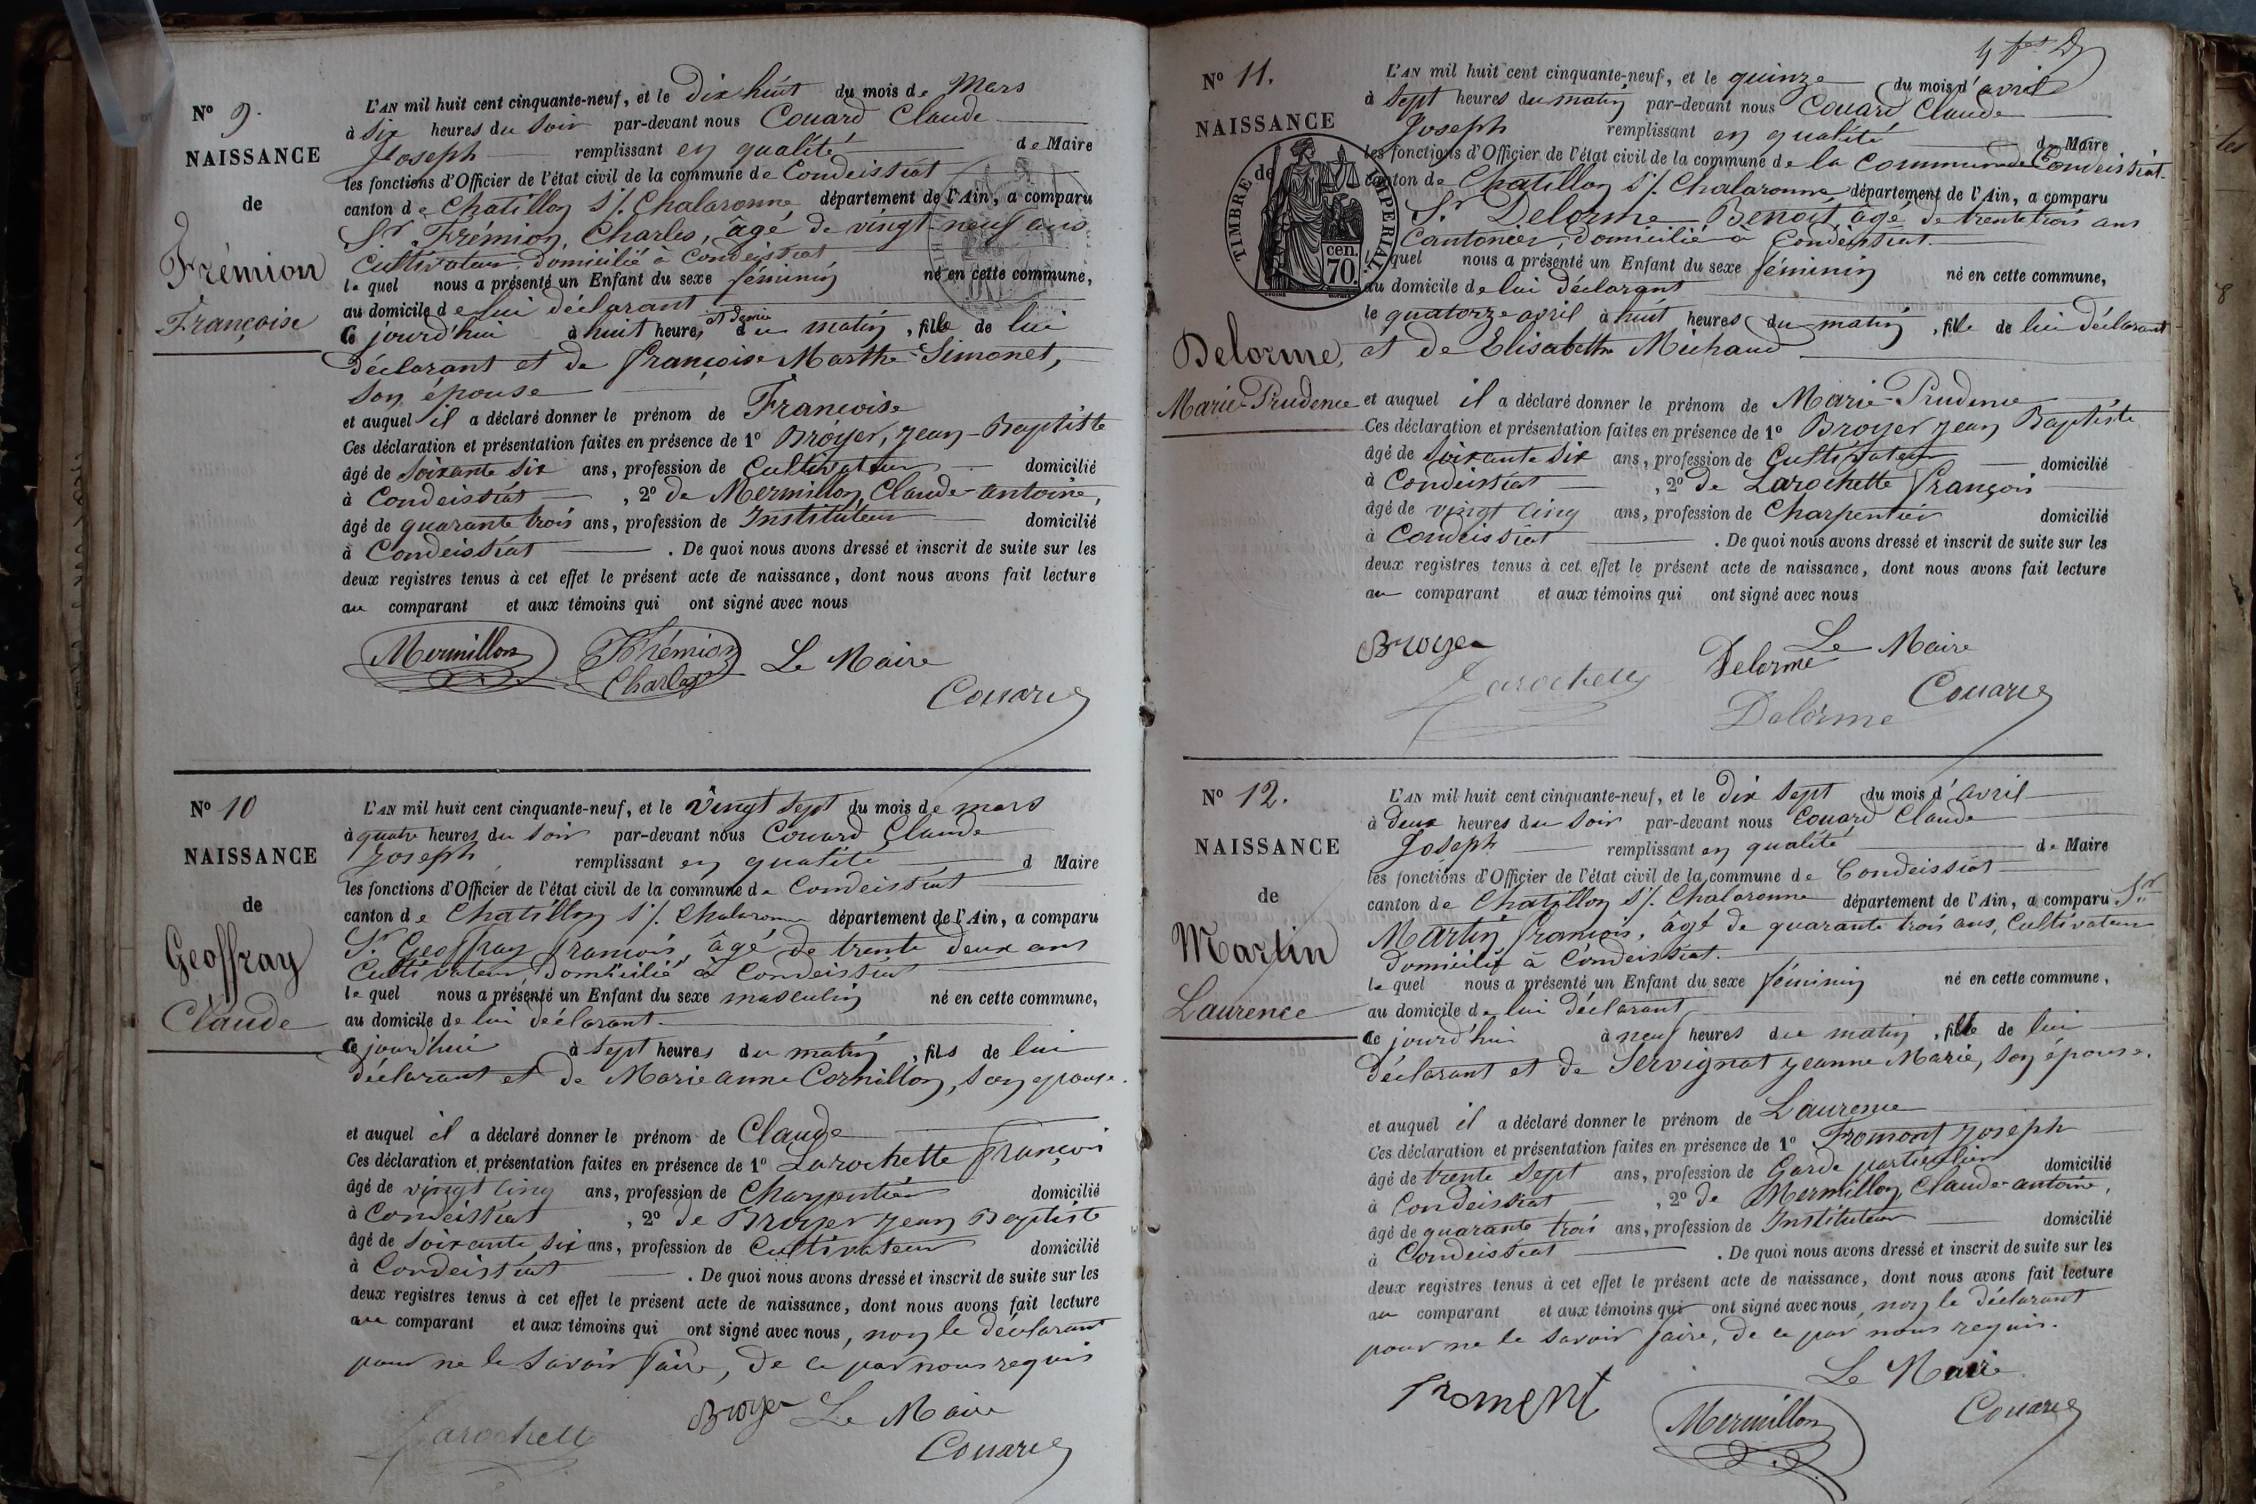 N° 9.
NAISSANCE
de
Frémion
Françoise
L'AN mil huit cent cinquante-neuf, et le dix huit du mois de Mars
à six heures du soir par-devant nous Couard Claude
Joseph remplissant en qualité de Maire
les fonctions d'Officier de l'état civil de la commune de Condeissiat
canton de Chatillon s/. Chalaronne département de l'Ain, a comparu
Sr. Frémion, Charles, âgé de vingt-neuf ans
Cultivateur, domicilié à Condeissiat
lequel nous a présenté un Enfant du sexe féminin né en cette commune,
au domicile de lui déclarant
Ce jourd'hui à huit heures et demie du matin, fille de lui
déclarant et de Françoise Marthe Simonet,
son épouse
et auquel il a déclaré donner le prénom de Françoise
Ces déclaration et présentation faites en présence de 1° Broyer, Jean-Baptiste
âgé de soixante six ans, profession de Cultivateur domicilié
à Condeissiat, 2° de Mermillon, Claude-antoine,
âgé de quarante trois ans, profession de Instituteur domicilié
à Condeissiat. De quoi nous avons dressé et inscrit de suite sur les
deux registres tenus à cet effet le présent acte de naissance, dont nous avons fait lecture
au comparant et aux témoins qui ont signé avec nous
Mermillon Frémion Le Maire
Charles Couard
N° 10
NAISSANCE
de
Geoffray
Claude
L'AN mil huit cent cinquante-neuf, et le vingt sept du mois de mars
à quatre heures du soir par-devant nous Couard Claude
Joseph remplissant en qualité d Maire
les fonctions d'Officier de l'état civil de la commune de Condeissiat
canton de Chatillon s/. Chalaronne département de l'Ain, a comparu
Sr. Geoffray françois, âgé de trente deux ans
Cultivateur, domicilié à Condeissiat
lequel nous a présenté un Enfant du sexe masculin né en cette commune,
au domicile de lui déclarant.
Ce jourd'hui à sept heures du matin, fils de lui
déclarant et de Marie anne Cornillon, son epouse.
et auquel il a déclaré donner le prénom de Claude
Ces déclaration et présentation faites en présence de 1° Larochette françois
âgé de vingt cinq ans, profession de Charpentier domicilié
à Condeissiat, 2° de Broyer Jean Baptiste
âgé de soixante six ans, profession de Cultivateur domicilié
à Condeissiat. De quoi nous avons dressé et inscrit de suite sur les
deux registres tenus à cet effet le présent acte de naissance, dont nous avons fait lecture
au comparant et aux témoins qui ont signé avec nous, non le déclarant
pour ne le savoir faire, de ce par nous requis
Larochette Broyer Le Maire
Couard
N° 11.
NAISSANCE
de
TIMBRE IMPERIAL
cen.
70.
Delorme,
Marie-Prudence
L'AN mil huit cent cinquante-neuf, et le quinze du mois d'avril
à sept heures du matin par-devant nous Couard Claude
Joseph remplissant en qualité de Maire
les fonctions d'Officier de l'état civil de la commune de la commune de Condeissiat
canton de Chatillon s/. Chalaronne département de l'Ain, a comparu
Sr. Delorme Benoit, âgé de trente trois ans
Cantonier, domicilié à Condeissiat.
lequel nous a présenté un Enfant du sexe féminin né en cette commune,
au domicile de lui déclarant
le quatorze avril à huit heures du matin, fille de lui déclarant
et de Elisabeth Michaud
et auquel il a déclaré donner le prénom de Marie-Prudence
Ces déclaration et présentation faites en présence de 1° Broyer Jean Baptiste
âgé de soixante six ans, profession de Cultivateur domicilié
à Condeissiat, 2° de Larochette françois
âgé de vingt cinq ans, profession de Charpentier domicilié
à Condeissiat. De quoi nous avons dressé et inscrit de suite sur les
deux registres tenus à cet effet le présent acte de naissance, dont nous avons fait lecture
au comparant et aux témoins qui ont signé avec nous
Broyer Delorme Le Maire
Larochette Delorme Couard
N° 12.
NAISSANCE
de
Martin
Laurence
L'AN mil huit cent cinquante-neuf, et le dix sept du mois d'avril
à deux heures du soir par-devant nous Couard Claude
Joseph remplissant en qualité de Maire
les fonctions d'Officier de l'état civil de la commune de Condeissiat
canton de Chatillon s/. Chalaronne département de l'Ain, a comparu Sr.
Martin françois, âgé de quarante trois ans, Cultivateur
domicilié à Condeissiat.
lequel nous a présenté un Enfant du sexe féminin né en cette commune,
au domicile de lui déclarant
Ce jourd'hui à neuf heures du matin, fille de lui
déclarant et de Servignat Jeanne Marie, son épouse.
et auquel il a déclaré donner le prénom de Laurence
Ces déclaration et présentation faites en présence de 1° Fromont Joseph
âgé de trente sept ans, profession de Garde particulier domicilié
à Condeissiat, 2° de Mermillon Claude-antoine,
âgé de quarante trois ans, profession de Instituteur domicilié
à Condeissiat. De quoi nous avons dressé et inscrit de suite sur les
deux registres tenus à cet effet le présent acte de naissance, dont nous avons fait lecture
au comparant et aux témoins qui ont signé avec nous, non le déclarant
pour ne le savoir faire, de ce par nous requis.
Froment Mermillon Le Maire
Couard